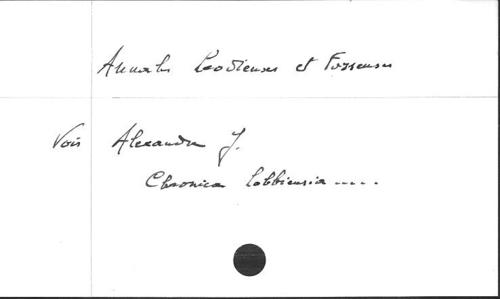 Annales Leodienses et Fossenses
Voir Alexandre J.
Chronica Lobbiensia .....